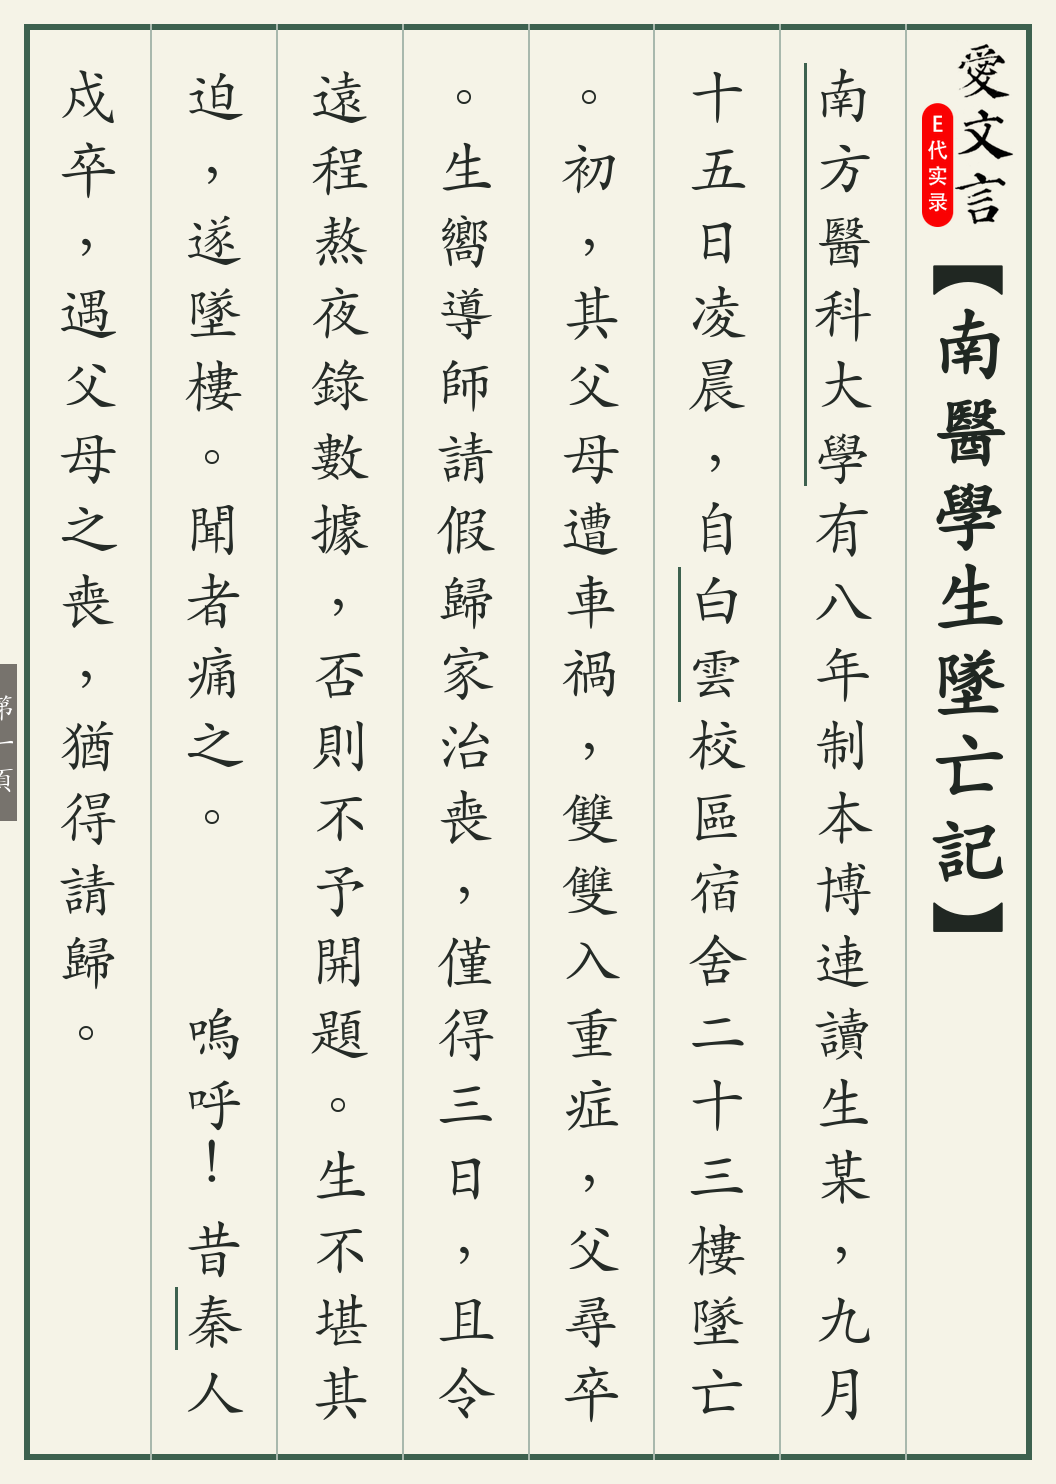 愛文言
E代实录
【南醫學生墜亡記】
南方醫科大學有八年制本博連讀生某，九月
十五日凌晨，自白雲校區宿舍二十三樓墜亡
。初，其父母遭車禍，雙雙入重症，父尋卒
。生嚮導師請假歸家治喪，僅得三日，且令
遠程熬夜錄數據，否則不予開題。生不堪其
迫，遂墜樓。聞者痛之。　　嗚呼！昔秦人
戍卒，遇父母之喪，猶得請歸。
第一頁